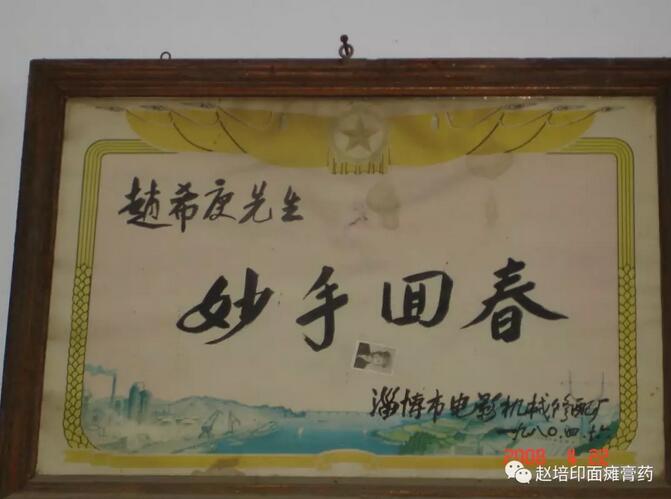 趙希庚先生
妙手回春
淄博市电影机械修配厂
一九八〇.四.
2008 4 22
赵培印面瘫膏药